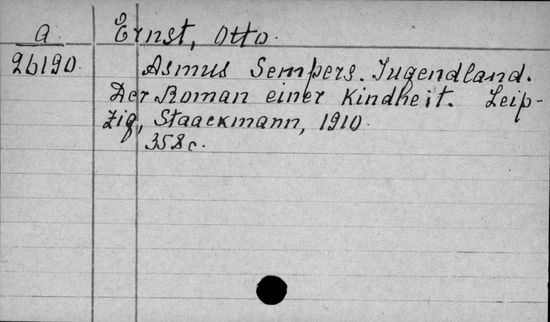 a Ernst, Otto.
26190 Asmus Sempers. Jugendland.
Der Roman einer Kindheit. Leip-
zig, Staackmann, 1910.
358 c.